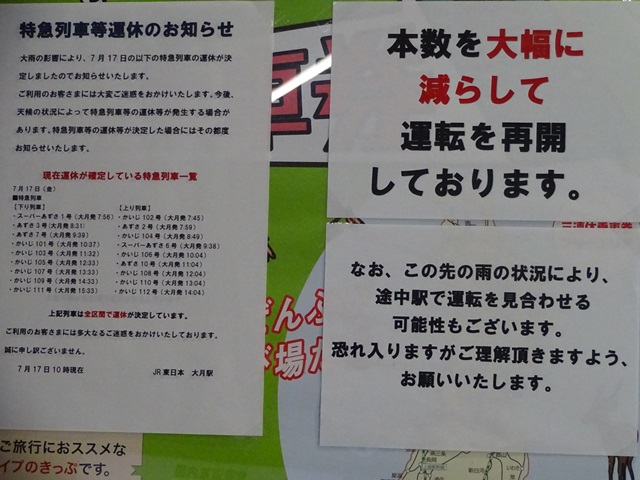 特急列車等運休のお知らせ
大雨の影響により、7月17日の以下の特急列車の運休が決
定しましたのでお知らせいたします。
ご利用のお客さまには大変ご迷惑をおかけいたします。今後、
天候の状況によって特急列車等の運休等が発生する場合が
あります。特急列車等の運休等が決定した場合にはその都度
お知らせいたします。
現在運休が確定している特急列車一覧
7月17日(金)
■特急列車
【下り列車】
・スーパーあずさ1号(大月発7:56)
・あずさ3号(大月発8:31)
・あずさ7号(大月発9:39)
・かいじ101号(大月発10:37)
・かいじ103号(大月発11:32)
・かいじ105号(大月発12:33)
・かいじ107号(大月発13:33)
・かいじ109号(大月発14:33)
・かいじ111号(大月発15:33)
【上り列車】
・かいじ102号(大月発7:45)
・あずさ2号(大月発7:59)
・かいじ104号(大月発8:49)
・スーパーあずさ6号(大月発9:38)
・かいじ106号(大月発10:04)
・あずさ10号(大月発11:04)
・かいじ108号(大月発12:04)
・かいじ110号(大月発13:04)
・かいじ112号(大月発14:04)
上記列車は全区間で運休が決定しています。
ご利用のお客さまには多大なるご迷惑をおかけいたしております。
誠に申し訳ございません。
7月17日10時現在 JR東日本 大月駅
本数を大幅に
減らして
運転を再開
しております。
なお、この先の雨の状況により、
途中駅で運転を見合わせる
可能性もございます。
恐れ入りますがご理解頂きますよう、
お願いいたします。
ご旅行におススメな
イプのきっぷです。